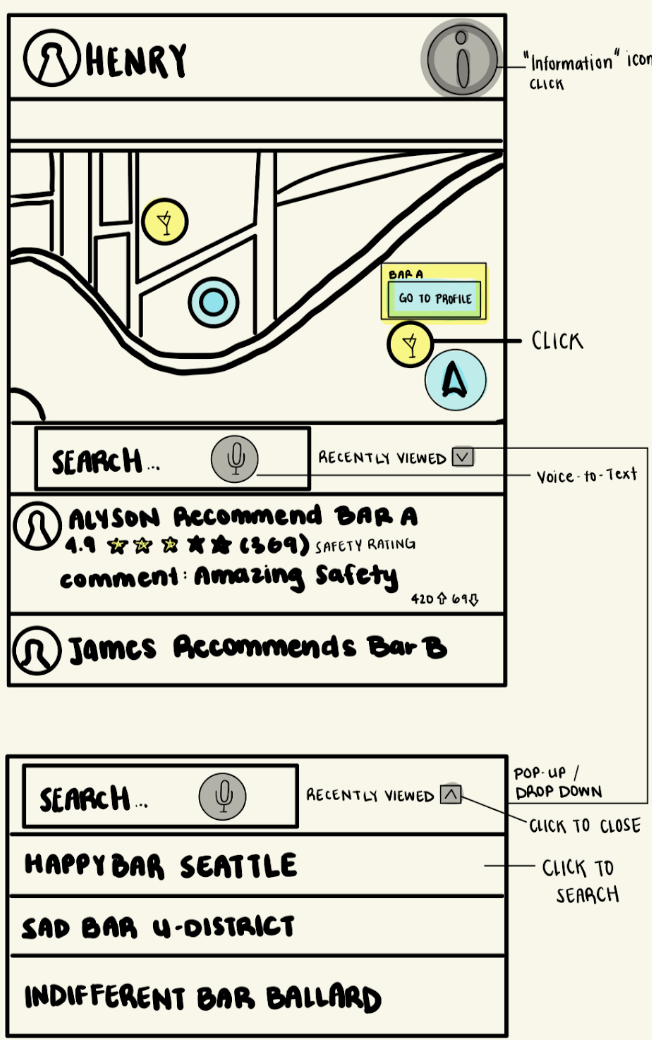 HENRY
"Information" icon
CLICK
BAR A
GO TO PROFILE
CLICK
SEARCH...
RECENTLY VIEWED
Voice-to-Text
ALYSON Recommend BAR A
4.9 (369) SAFETY RATING
comment: Amazing Safety
420 69
James Recommends Bar B
SEARCH...
RECENTLY VIEWED
POP-UP /
DROP DOWN
CLICK TO CLOSE
HAPPY BAR SEATTLE
CLICK TO
SEARCH
SAD BAR U-DISTRICT
INDIFFERENT BAR BALLARD